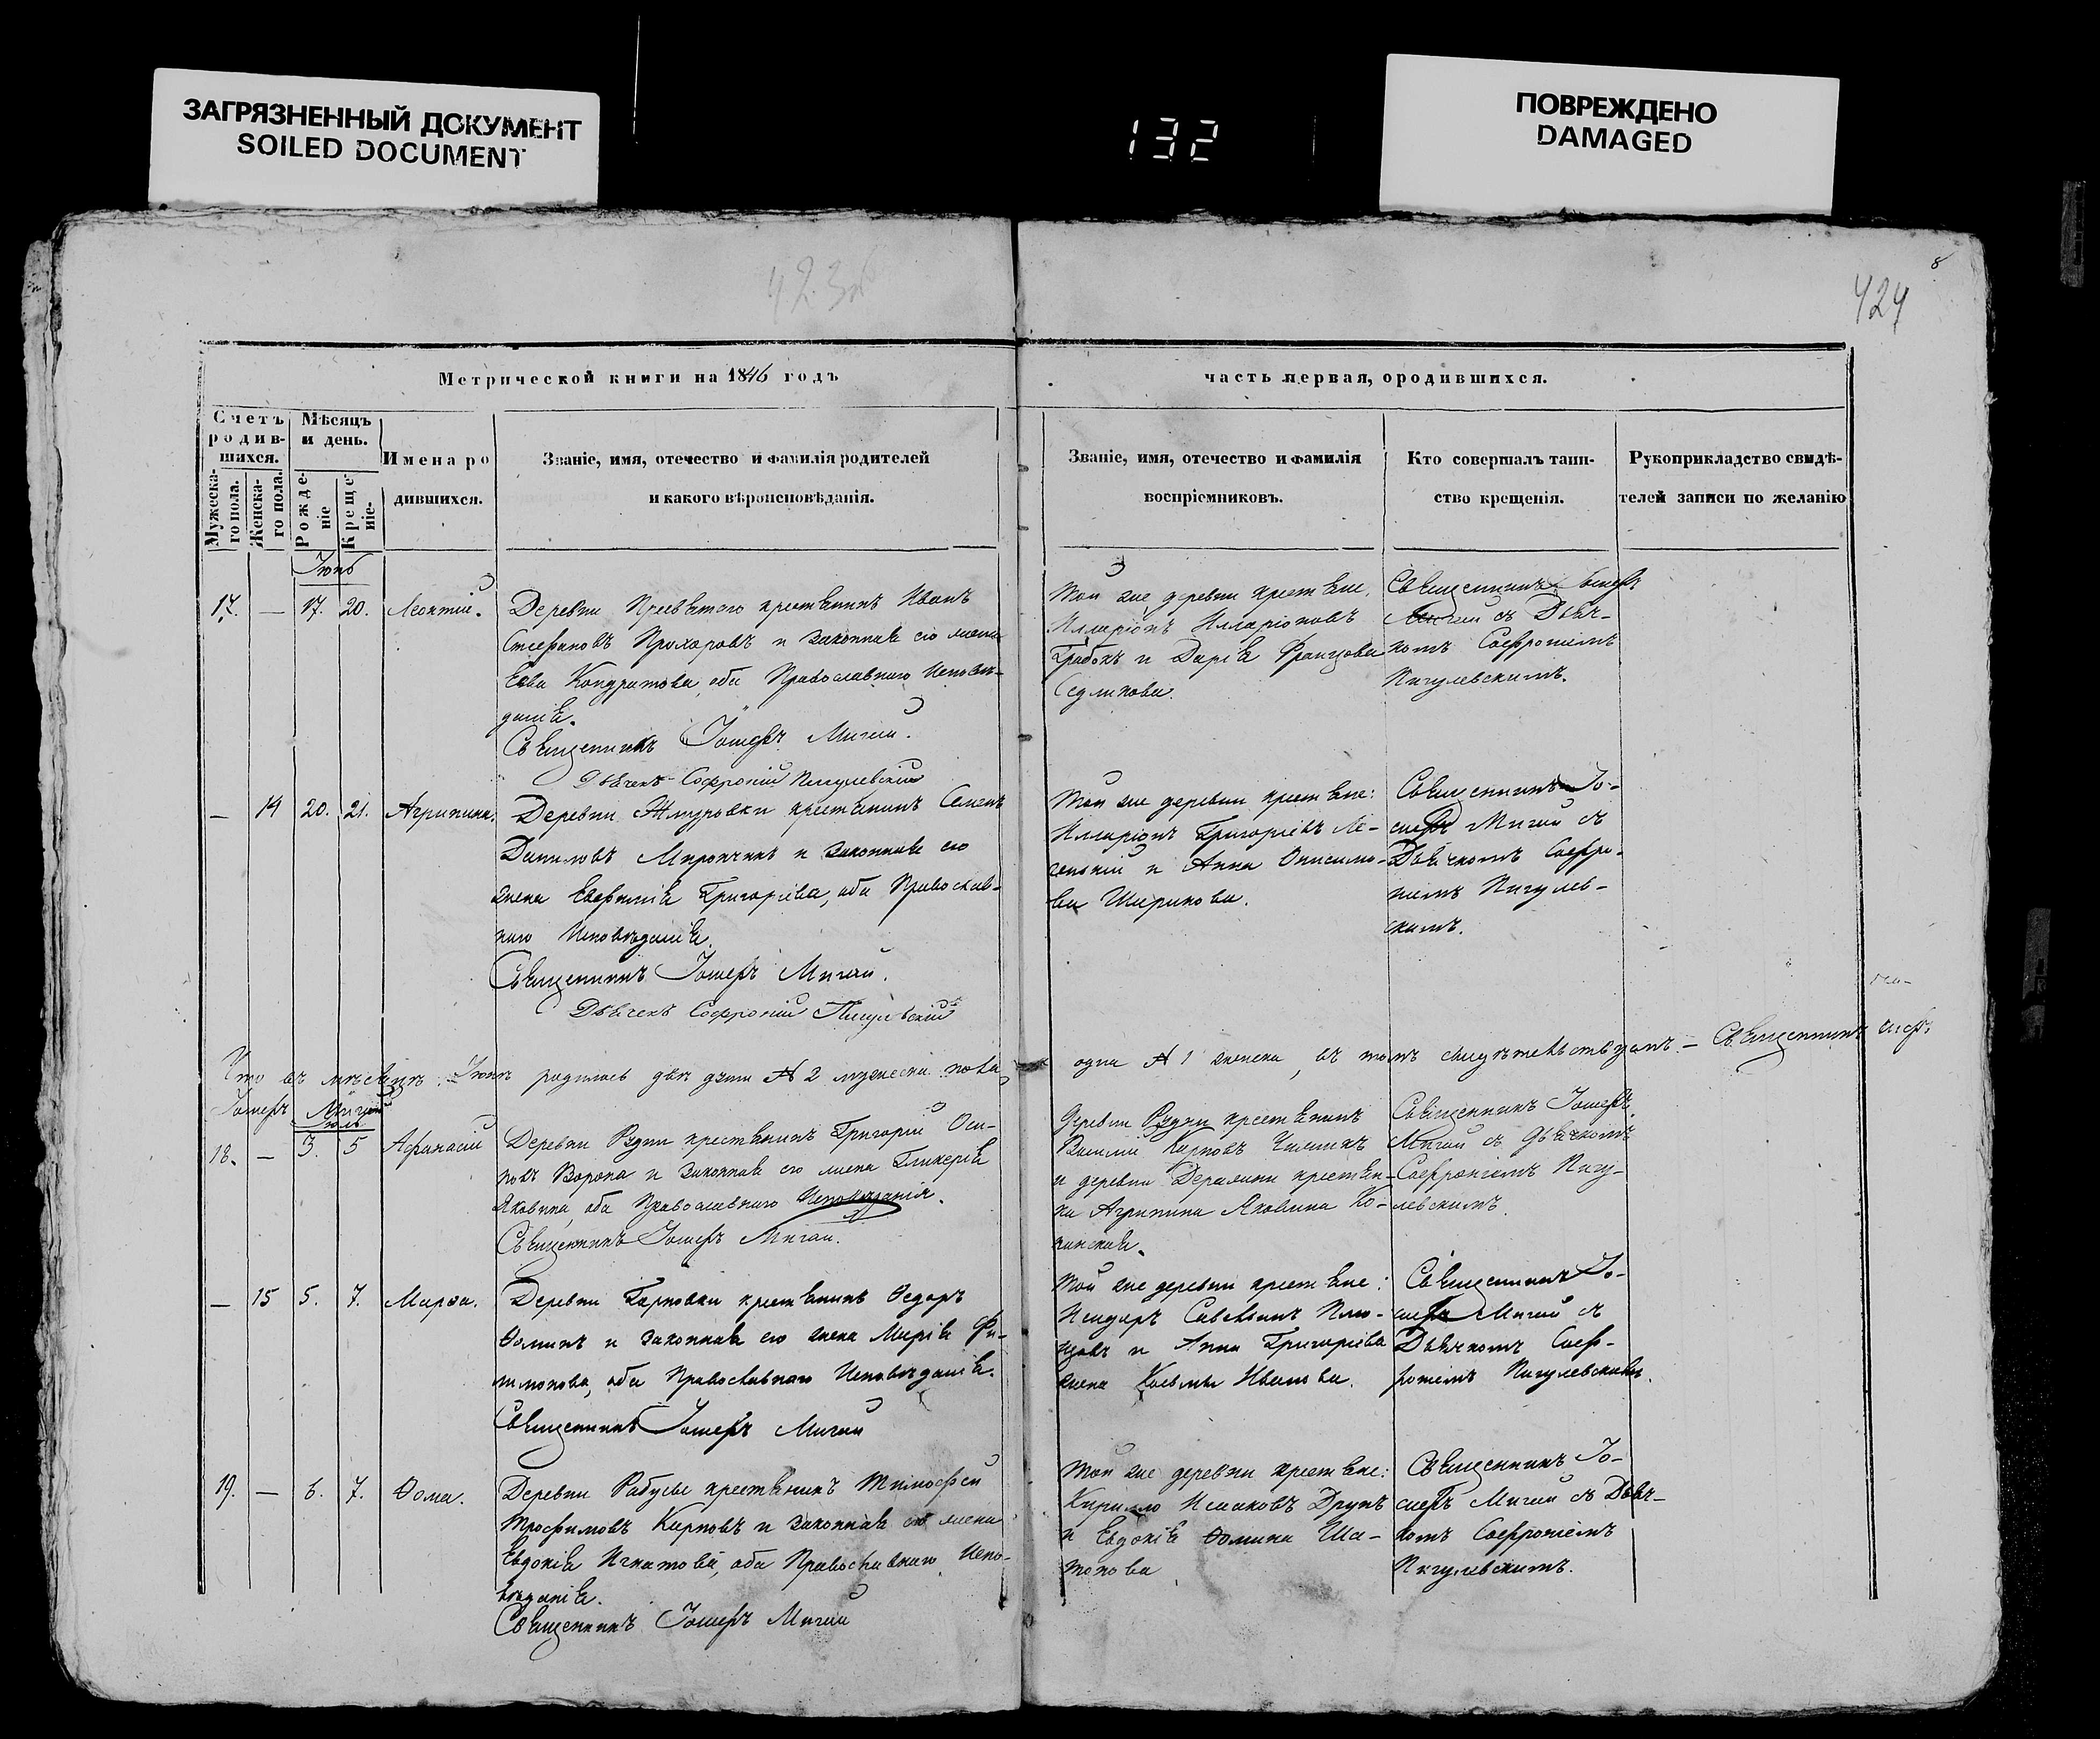 ЗАГРЯЗНЕННЫЙ ДОКУМЕНТ
SOILED DOCUMENT
132
ПОВРЕЖДЕНО
DAMAGED
8
424
Метрической книги на 1846 годъ
часть первая, о родившихся.
Счетъ родив-шихся.
Мужеска-го пола.
Женска-го пола.
Мѣсяцъ и день.
Рожде-ніе
Креще-ніе.
Имена ро
дившихся.
Званіе, имя, отечество и фамилія родителей
и какого вѣроисповѣданія.
Званіе, имя, отечество и фамилія
воспріемниковъ.
Кто совершалъ таин-
ство крещенія.
Рукоприкладство свидѣ-
телей записи по желанію
Іюнь
17. — 17. 20. Леонтій.
Деревни крестьянинъ Иванъ
Стефановъ Прохоровъ и законная его жена
Ева Кондратова, оба Православнаго Исповѣ-
данія.
Священникъ Іосифъ Мигай.
Дьячекъ Софроній Пигулевскій
Той же деревни крестьяне,
Илларіонъ Илларіоновъ
Грабокъ и Дарія Францова
Седликова.
Священникъ Іосифъ
Мигай съ Дьяч-
комъ Софроніемъ
Пигулевскимъ.
— 14 20. 21. Агрипина.
Деревни Жмуровки крестьянинъ Семенъ
Даниловъ Мирончикъ и законная его
жена Евфимія Григоріева, оба Православ-
наго Исповѣданія.
Священникъ Іосифъ Мигай.
Дьячекъ Софроній Пигулевскій
Той же деревни крестьяне:
Илларіонъ Григоріевъ Ле-
и Анна Онисимо-
ва Ширикова.
Священникъ Іо-
сифъ Мигай съ
Дьячкомъ Софро-
ніемъ Пигулев-
скимъ.
Что въ мѣсяцѣ Іюнѣ родилось двѣ души № 2 мужеска пола,
одна № 1 женска, въ томъ свидѣтельствуемъ. — Священникъ
Іосифъ Мигай
Іюль
18. — 3. 5 Афанасій
Деревни Рудни крестьянинъ Григорій Оси-
повъ Ворона и законная его жена Гликерія
Яковлева, оба Православнаго Исповѣданія.
Священникъ Іосифъ Мигай.
Деревни Рудни крестьянинъ
Василій Карповъ
и деревни крестьян-
ка Агрипина Яковлева Ко-
Священникъ Іосифъ
Мигай съ Дьячкомъ
Софроніемъ Пигу-
левскимъ.
— 15 5. 7. Марѳа.
Деревни крестьянинъ Ѳедоръ
Ѳоминъ и законная его жена Марія Фи-
лимонова, оба Православнаго Исповѣданія.
Священникъ Іосифъ Мигай
Той же деревни крестьяне:
Исидоръ Савельинъ
и Анна Григоріева
жена Козьмы Иванова.
Священникъ Іо-
сифъ Мигай съ
Дьячкомъ Соф-
роніемъ Пигулевскимъ.
19. — 6. 7. Ѳома.
Деревни Рабусы крестьянинъ Тимофей
Трофимовъ Карповъ и законная его жена
Евдокія Игнатова, оба Православнаго Испо-
вѣданія.
Священникъ Іосифъ Мигай
Той же деревни крестьяне:
Кирилло Исаковъ Друпъ
и Евдокія Ѳомина Ша-
Священникъ Іо-
сифъ Мигай съ Дьяч-
комъ Софроніемъ
Пигулевскимъ.